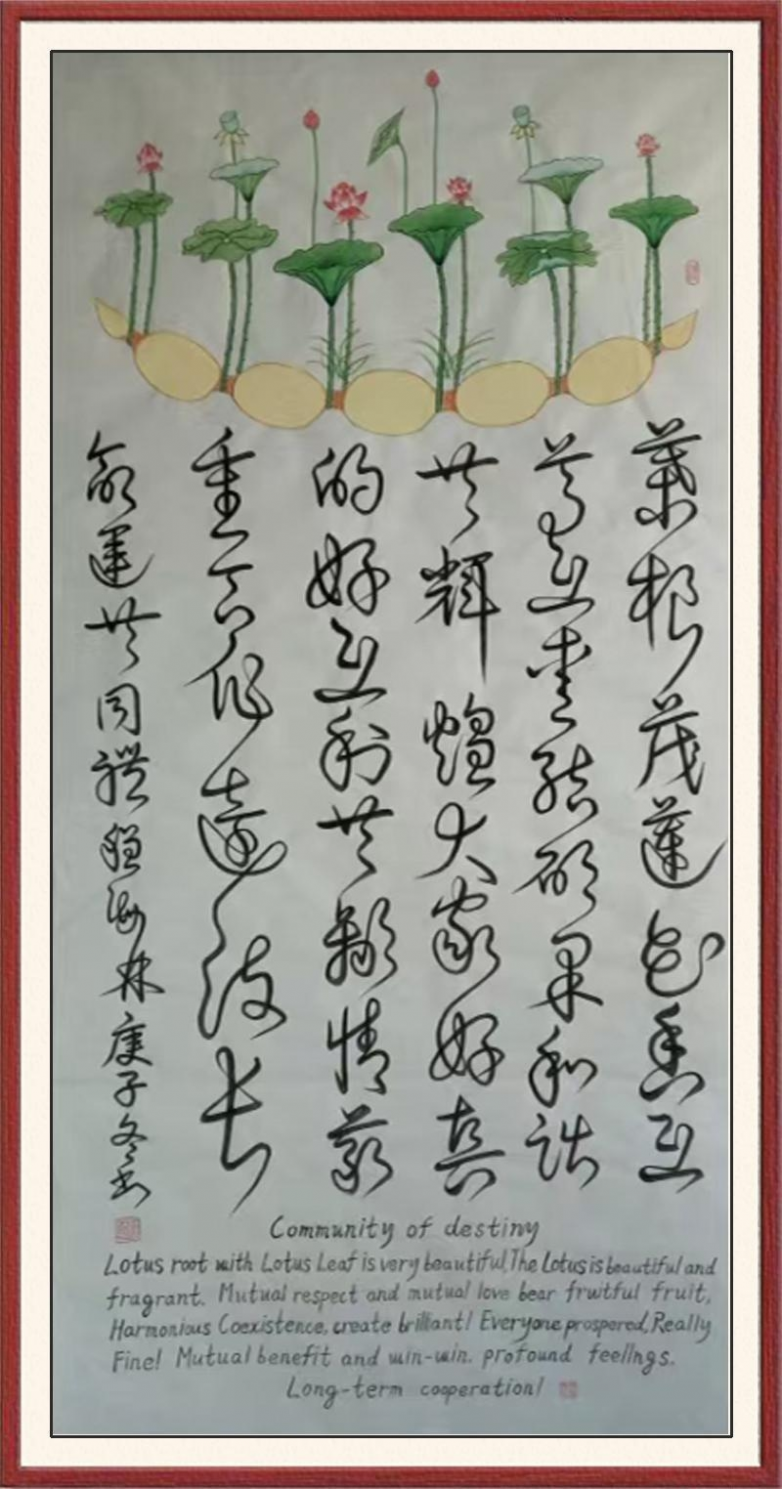 葉根茂蓮花香互
尊互愛結碩果和諧
共輝煌大家好真
的好互利共贏情義
重合作遠长
命運共同體 海林庚子冬书
Community of destiny
Lotus root with Lotus Leaf is very beautiful,The Lotus is beautiful and
fragrant. Mutual respect and mutual love bear fruitful fruit,
Harmonious Coexistence, create brilliant! Everyone prospered, Really
Fine! Mutual benefit and win-win. profound feelings.
Long-term cooperation!